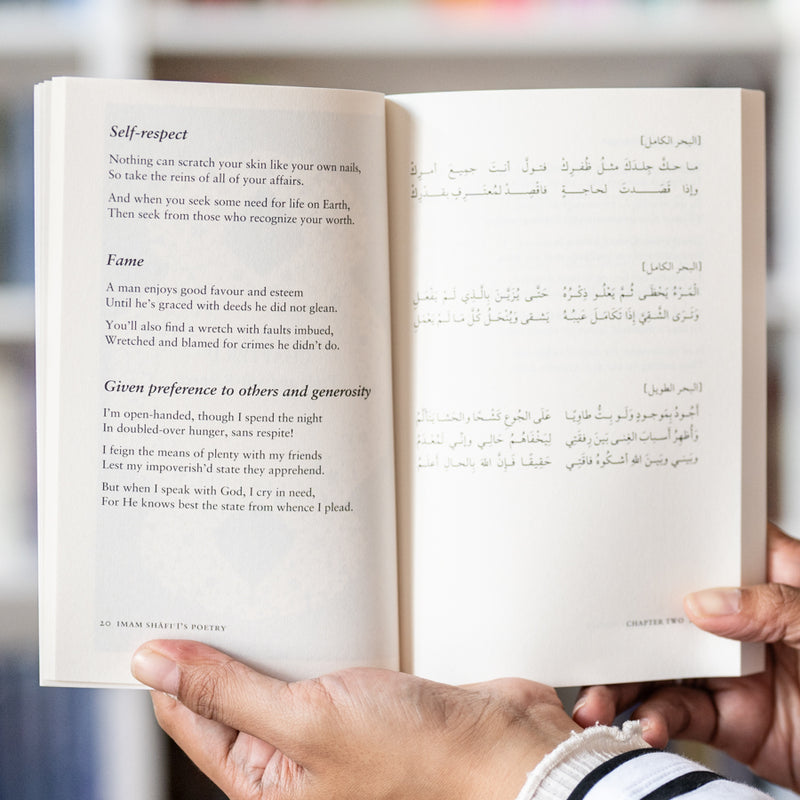 Self-respect
Nothing can scratch your skin like your own nails,
So take the reins of all of your affairs.
And when you seek some need for life on Earth,
Then seek from those who recognize your worth.
Fame
A man enjoys good favour and esteem
Until he's graced with deeds he did not glean.
You'll also find a wretch with faults imbued,
Wretched and blamed for crimes he didn't do.
Given preference to others and generosity
I'm open-handed, though I spend the night
In doubled-over hunger, sans respite!
I feign the means of plenty with my friends
Lest my impoverish'd state they apprehend.
But when I speak with God, I cry in need,
For He knows best the state from whence I plead.
20 IMAM SHĀFIʿĪ'S POETRY
[البحر الكامل]
ما حكَّ جِلدَكَ مثلُ ظُفرِكْ فتولَّ أنتَ جميعَ أمرِكْ
وإذا قَصَدتَ لحاجةٍ فاقْصِدْ لمُعتَرِفٍ بقَدْرِكْ
[البحر الكامل]
الْمَرْءُ يَحْظَى ثُمَّ يَعْلُو ذِكْرُهُ حَتَّى يُزَيَّنَ بِالَّذِي لَمْ يَفْعَلِ
وَتَرَى الشَّقِيَّ إِذَا تَكَامَلَ عَيبُهُ يَشقى وَيُنْحَلُ كُلَّ مَا لَمْ يَعْمَلِ
[البحر الطويل]
أجُودُ بِمَوجودٍ وَلَو بِتُّ طاوِيًا عَلَى الجُوعِ كَشْحًا والحَشا يتألَّمُ
وَأُظهِرُ أسبابَ الغِنى بَينَ رِفقَتِي لِيَخْفَاهُمُ حَالي وإنِّي لَمُعْدَمُ
وبَيني وبَينَ اللهِ أشكُوهُ فاقَتِي حَقِيقًا فَإنَّ اللهَ بِالحالِ أعلَمُ
CHAPTER TWO